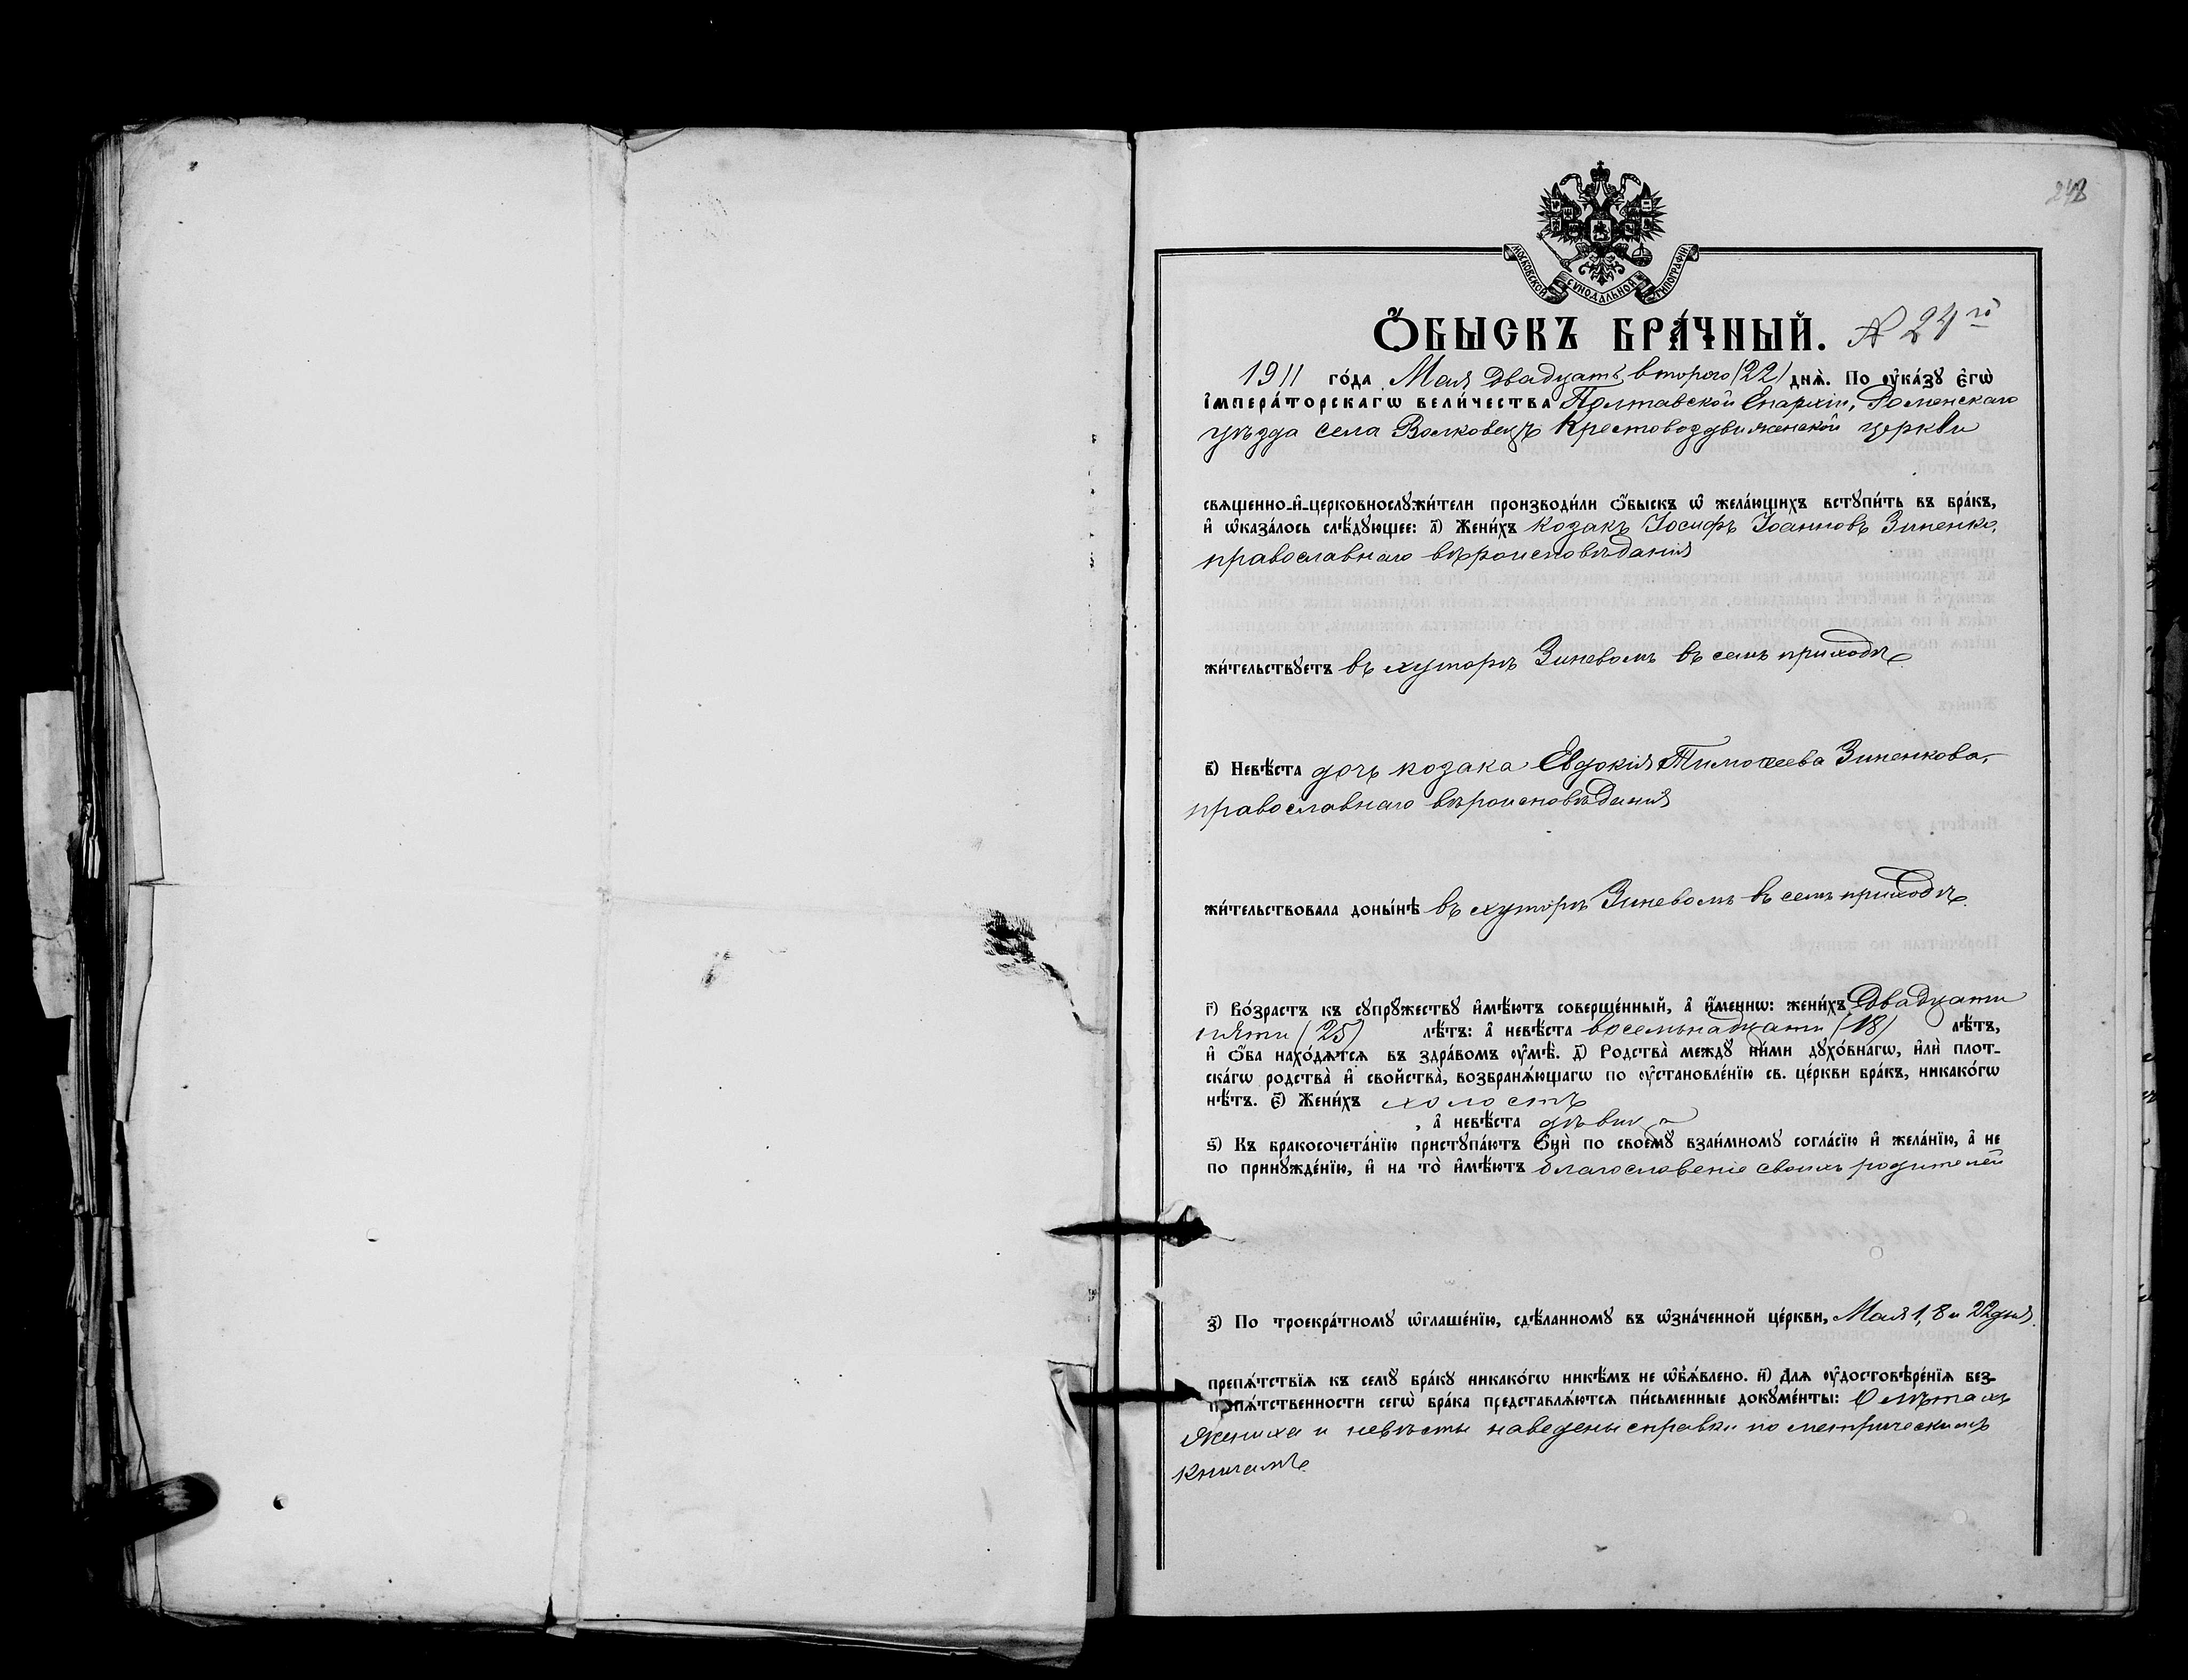 248
МОСКОВСКОЙ СѴНОДАЛЬНОЙ ТИПОГРАФІИ
Ѻ҆БЫСКЪ БРА́ЧНЫЙ. № 24го
1911 го́да Мая двадцать втораго (22) днѧ̀. По ᲂу҆ка́зꙋ є҆гѡ̀
і҆мпера́торскагѡ вели́чества Полтавской Епархіи, Роменскаго
уѣзда села Волковецъ Крестовоздвиженской церкви
свѧщенно-и҆-церковнослꙋжи́тели производи́ли ѻ҆́быскъ ѡ҆ жела́ющихъ встꙋпи́ть въ бра́къ,
и҆ ѡ҆каза́лось слѣ́дꙋющее: а҃) Жени́хъ козакъ Іосифъ Іоанновъ Зиненко,
православнаго вѣроисповѣданія
жи́тельствꙋетъ въ хуторѣ Зиневомъ въ семъ приходѣ
в҃) Невѣ́ста дочь козака Евдокія Тимоѳеева Зиненкова,
православнаго вѣроисповѣданія
жи́тельствовала доны́нѣ въ хуторѣ Зиневомъ въ семъ приходѣ.
г҃) Во́зрастъ къ сꙋпрꙋ́жествꙋ и҆мѣ́ютъ соверше́нный, а҆ и҆́меннѡ: жени́хъ двадцати
пяти (25) лѣ́тъ: а҆ невѣ́ста восемьнадцати (18) лѣ́тъ,
и҆ ѻ҆́ба нахо́дѧтсѧ въ здра́вомъ ᲂу҆мѣ̀. д҃) Родства̀ междꙋ̀ ни́ми дꙋхо́внагѡ, и҆лѝ плот-
ска́гѡ родства̀ и҆ сво́йства̀, возбранѧ́ющагѡ по ᲂу҆становле́нїю св. це́ркви бра́къ, никако́гѡ
нѣ́тъ. є҃) Жени́хъ холостъ
, а҆ невѣ́ста дѣвица
ѕ҃) Къ бракосочета́нїю пристꙋпа́ютъ Ѻ҆нѝ по своемꙋ̀ взаи́мномꙋ согла́сїю и҆ жела́нїю, а҆ не
по принꙋжде́нїю, и҆ на то̀ и҆мѣ́ютъ благословеніе своихъ родителей
з҃) По троекра́тномꙋ ѡ҆глаше́нїю, сдѣ́ланномꙋ въ ѡ҆зна́ченной це́ркви, Мая 1, 8 и 22 дня.
препѧ́тствїѧ къ семꙋ̀ бра́кꙋ никако́гѡ никѣ́мъ не ѡ҆б̾ѧ́влено. и҃) Длѧ ᲂу҆достовѣре́нїѧ без-
препѧ́тственности сегѡ̀ бра́ка представлѧ́ютсѧ пи́сьменные докꙋме́нты: О лѣтахъ
жениха и невѣсты наведены справки по метрическимъ
книгамъ.